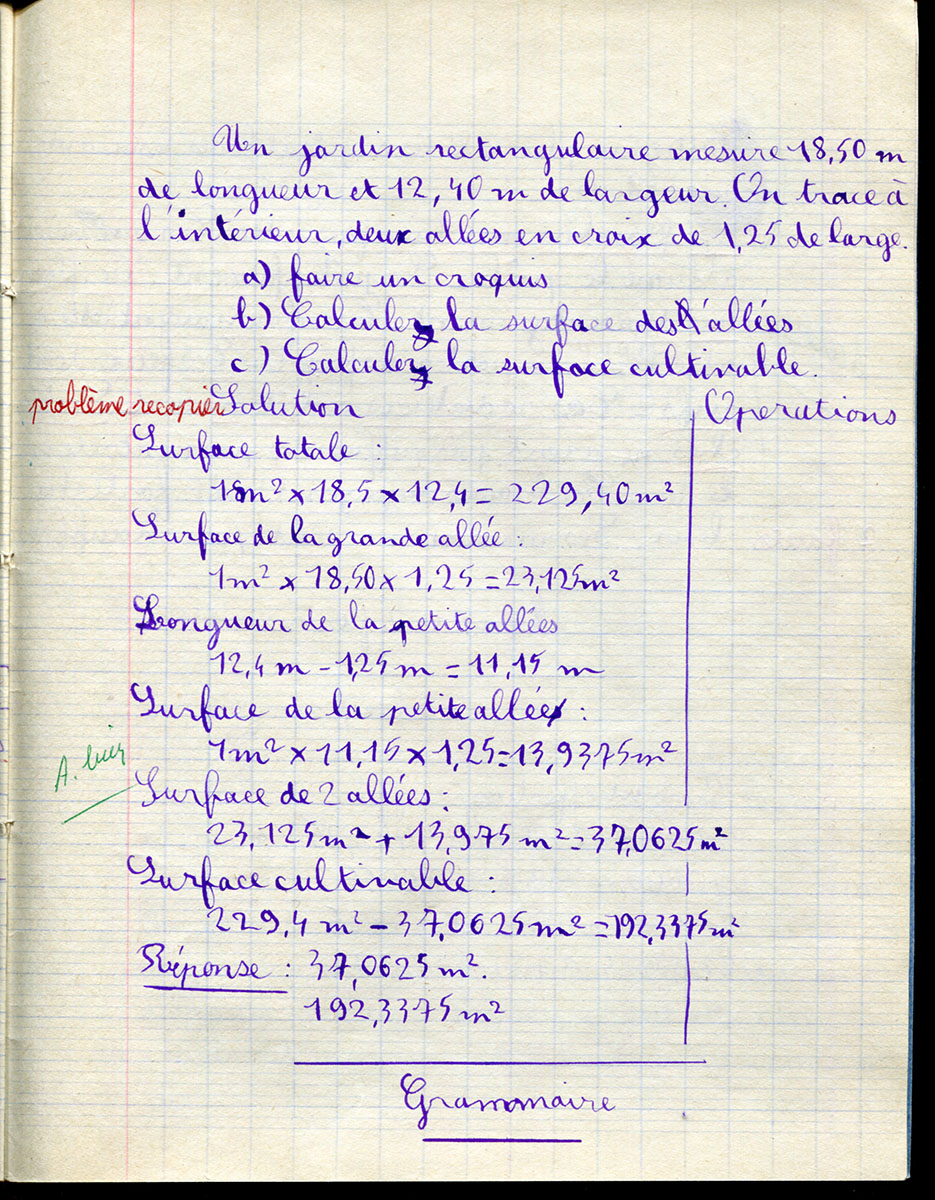 Un jardin rectangulaire mesure 18,50 m
de longueur et 12,40 m de largeur. On trace à
l'intérieur, deux allées en croix de 1,25 de large.
a) faire un croquis
b) Calculer la surface des allées
c) Calculer la surface cultivable.
problème recopier Solution Operations
Surface totale :
1m² x 18,5 x 12,4 = 229,40 m²
Surface de la grande allée :
1m² x 18,50 x 1,25 = 23,125m²
Longueur de la petite allées
12,4 m - 1,25 m = 11,15 m
Surface de la petite allée :
1m² x 11,15 x 1,25 = 13,9375m²
A. bien
Surface de 2 allées :
23,125m² + 13,975 m² = 37,0625 m²
Surface cultivable :
229,4 m² - 37,0625 m² = 192,3375 m²
Réponse : 37,0625 m².
192,3375 m²
Grammaire